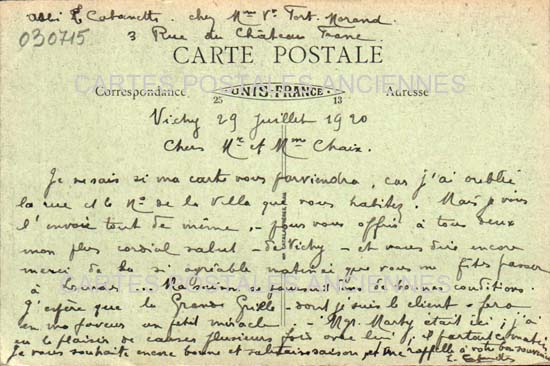 Abbé E. Cabanettes chez Mme Vve Fort-Morand
3 Rue du Château Franc
030715
CARTE POSTALE
CARTES POSTALES ANCIENNES
Correspondance
UNIS-FRANCE
25 13
Adresse
Vichy 29 Juillet 1920
Chers Mr et Mme Chaix.
Je ne sais si ma carte vous parviendra, car j'ai oublié
la rue et le No de la Villa que vous habitez. Mais je vous
l'envoie tout de même, - pour vous offrir à tous deux
mon plus cordial salut - de Vichy - et vous dire encore
merci de la si agréable matinée que vous me fîtes passer
à . Ma saison se poursuit dans de bonnes conditions.
J'espère que la Grande Grille - dont je suis le client - fera
en ma faveur un petit miracle. - Mgr. Marty était ici ; j'ai
eu le plaisir de causer plusieurs fois avec lui ; il partout
Je vous souhaite encore bonne et salutaire saison, et me rappelle à votre bon souvenir
E. Cabanettes